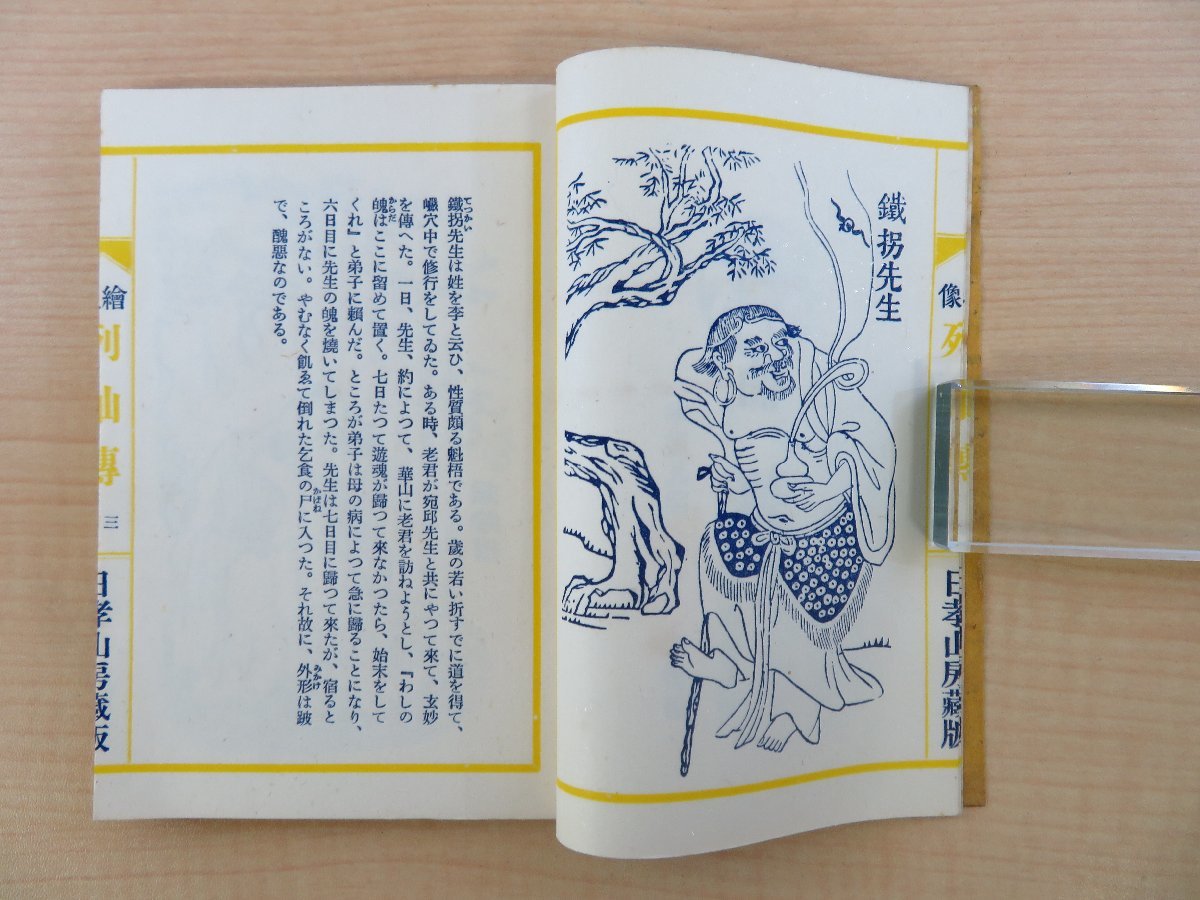 鐵拐先生
像
鐵拐先生は姓を李と云ひ、性質頗る魁梧である。歲の若い折すでに道を得て、
巗穴中で修行をしてゐた。ある時、老君が宛邱先生と共にやつて來て、玄妙
を傳へた。一日、先生、約によつて、華山に老君を訪ねようとし、『わしの
魄はここに留めて置く。七日たつて遊魂が歸つて來なかつたら、始末をして
くれ』と弟子に賴んだ。ところが弟子は母の病によつて急に歸ることになり、
六日目に先生の魄を燒いてしまつた。先生は七日目に歸つて來たが、宿ると
ころがない。やむなく飢ゑて倒れた乞食の尸に入つた。それ故に、外形は跛
で、醜惡なのである。
てつかい
からだ
かばね
みかけ
繪
列仙傳
三
田孝山房藏版
田孝山房藏版